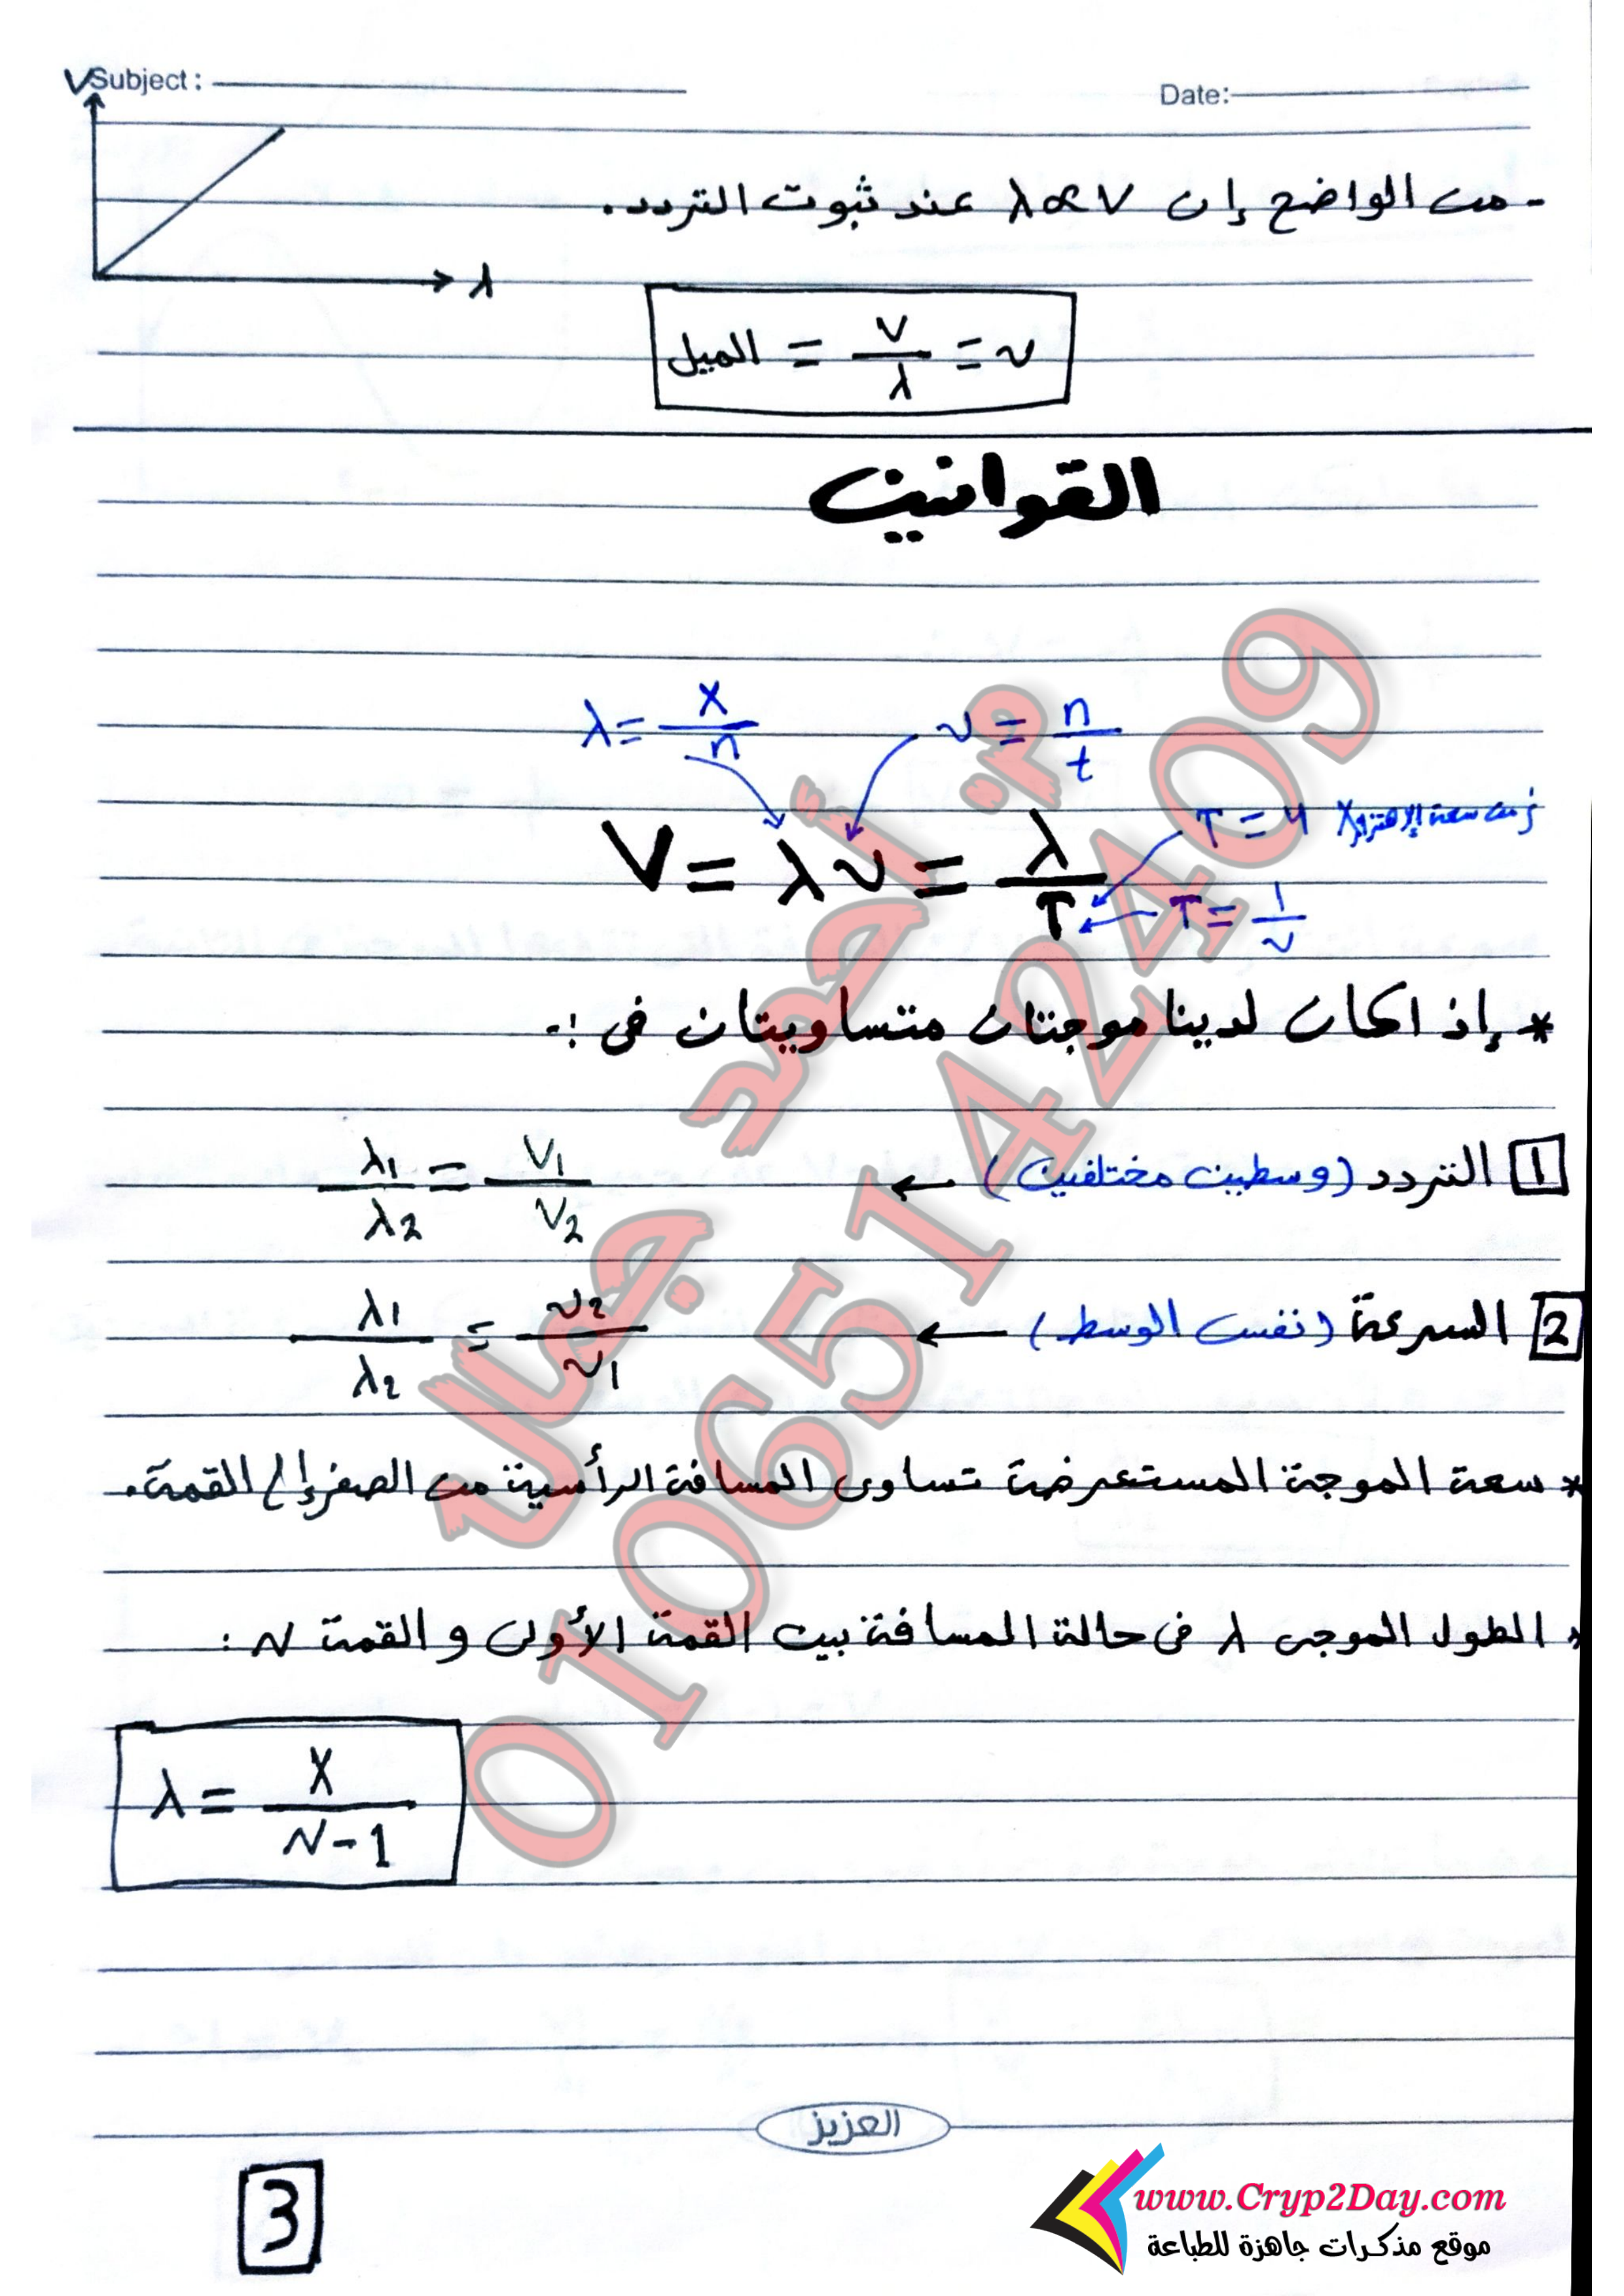 Subject :
Date:
V
- من الواضح إن λ∝V عند ثبوت التردد.
λ
الميل = V/λ = ν
القوانين
λ = X/n
ν = n/t
T = 4 × زمن سعة الإهتزازة
V = λν = λ/T
T = 1/ν
* إذ اكان لدينا موجتان متساويتان فى :-
1 التردد (وسطين مختلفين) ← λ1/λ2 = V1/V2
2 السرعة (نفس الوسط) ← λ1/λ2 = ν2/ν1
* سعة الموجة المستعرضة تساوى المسافة الرأسية من الصفر إلى القمة.
* الطول الموجى λ فى حالة المسافة بين القمة الأولى و القمة N :
λ = X/N-1
م. أحمد جمال
01065142409
العزيز
3
www.Cryp2Day.com
موقع مذكرات جاهزة للطباعة